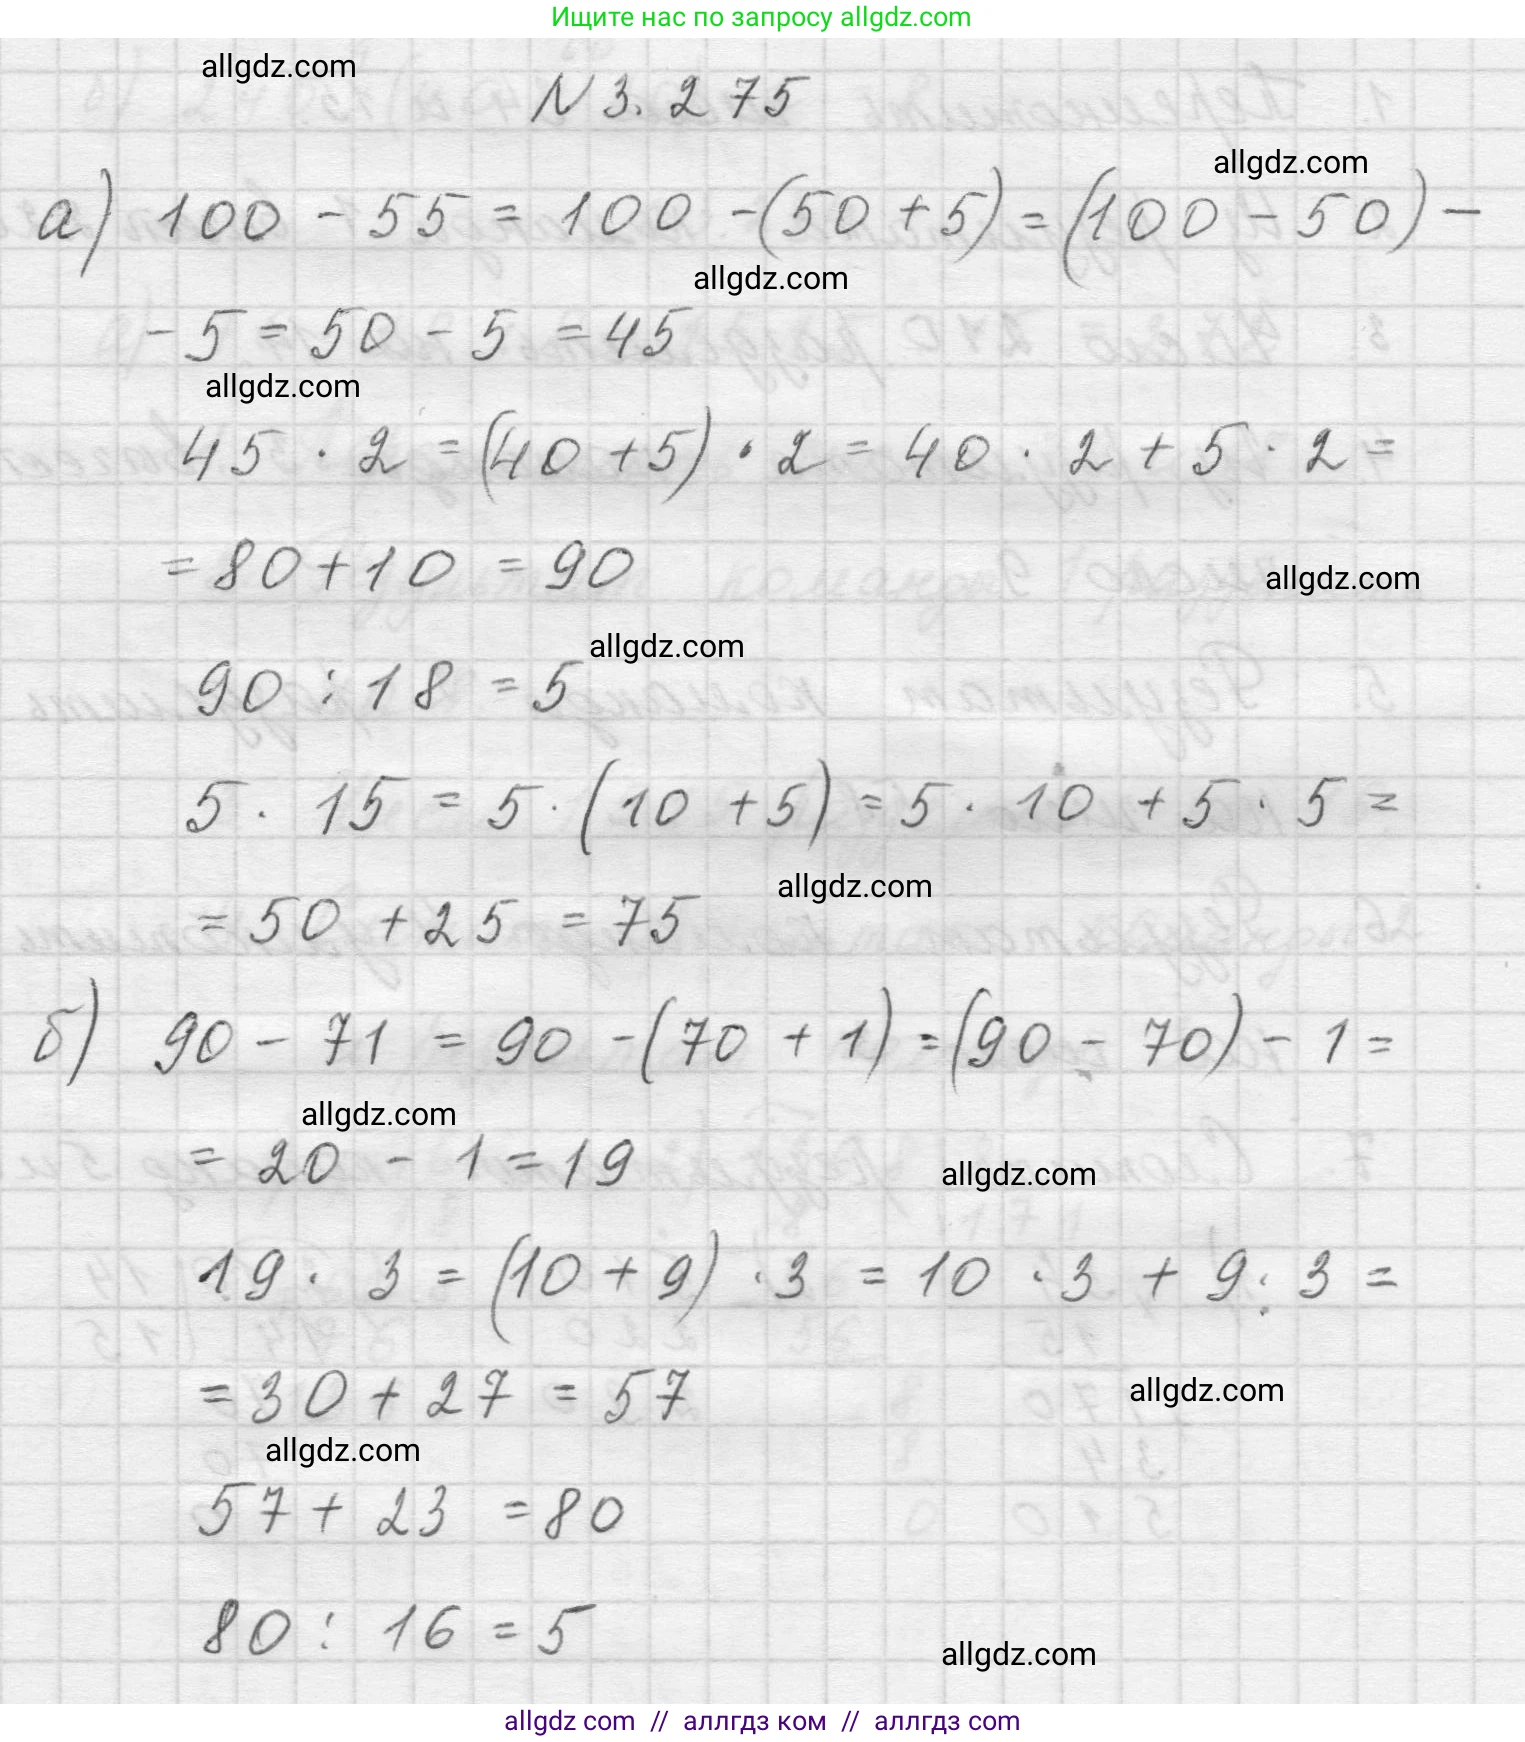 Ищите нас по запросу allgdz.com
allgdz.com
N 3.275
allgdz.com
а) 100 - 55 = 100 - (50 + 5) = (100 - 50) -
allgdz.com
- 5 = 50 - 5 = 45
allgdz.com
45 · 2 = (40 + 5) · 2 = 40 · 2 + 5 · 2 =
= 80 + 10 = 90
allgdz.com
allgdz.com
90 : 18 = 5
5 · 15 = 5 · (10 + 5) = 5 · 10 + 5 · 5 =
allgdz.com
= 50 + 25 = 75
б) 90 - 71 = 90 - (70 + 1) = (90 - 70) - 1 =
allgdz.com
= 20 - 1 = 19
allgdz.com
19 · 3 = (10 + 9) · 3 = 10 · 3 + 9 : 3 =
= 30 + 27 = 57
allgdz.com
allgdz.com
57 + 23 = 80
80 : 16 = 5
allgdz.com
allgdz com // аллгдз ком // аллгдз com